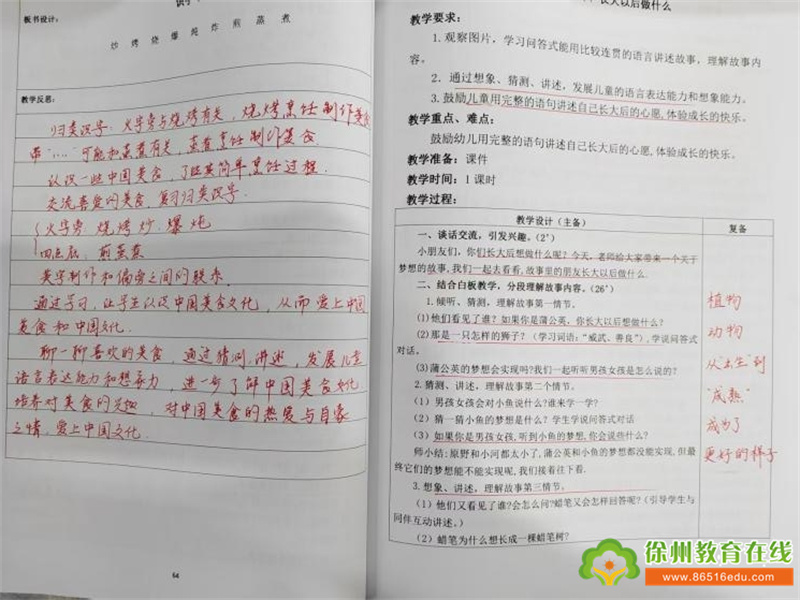 识字
板书设计：
炒 烤 烧 爆 炖 炸 煎 蒸 煮
教学反思：
归类识字，火字旁与烧烤有关，烧烤烹饪制作美食
带“灬”可能和蒸煮有关，蒸煮烹饪制作美食
认识一些中国美食，了解其简单烹饪过程.
交流喜爱的美食，复习归类识字.
火字旁 烧 烤 炒 爆 炖
四点底 煎 蒸 煮
美食制作和偏旁之间的联系.
通过学习，让学生认识中国美食文化，从而爱上中国
美食和中国文化.
聊一聊喜欢的美食，通过猜测，讲述，发展儿童
语言表达能力和想象力，进一步了解中国美食文化
培养对美食的兴趣，对中国美食的热爱与自豪
之情，爱上中国文化.
54
长大以后做什么
教学要求：
1.观察图片，学习问答式能用比较连贯的语言讲述故事，理解故事内
容。
2．通过想象、猜测、讲述，发展儿童的语言表达能力和想象能力。
3.鼓励儿童用完整的语句讲述自己长大后的心愿,体验成长的快乐。
教学重点、难点：
鼓励幼儿用完整的语句讲述自己长大后的心愿,体验成长的快乐。
教学准备：课件
教学时间：1课时
教学过程：
教学设计（主备）
复备
一、谈话交流，引发兴趣。(2’)
小朋友们，你们长大后想做什么呢？今天，老师给大家带来一个关于
梦想的故事,我们一起去看看,故事里的朋友长大以后做什么.
二、结合白板教学，分段理解故事内容。(26’)
1.倾听、猜测，理解故事第一情节。
(1)他们看见了谁？如果你是蒲公英，你长大以后想做什么？
(2)那是一只怎样的狮子？（学习词语：“威武、善良”）,学说问答式
对话。
(3)蒲公英的梦想会实现吗？我们一起听听男孩女孩是怎么说的？
2.猜测、讲述，理解故事第二个情节。
（1）男孩女孩会对小鱼说什么?谁来学一学?
（2）猜一猜小鱼的梦想是什么？学生学说问答式对话
（3）如果你是男孩女孩,听到小鱼的梦想,你会说些什么？
师小结:原野和小河都太小了,蒲公英和小鱼的梦想都没能实现,但最
终它们的梦想能不能实现呢,我们接着往下看.
3.想象、讲述，理解故事第三情节。
（1）他们又看见了谁?会怎么问?蜡笔又会怎样回答呢?（引导学生与
同伴互动讲述。）
（2）蜡笔为什么想长成一棵蜡笔树?
植物
动物
从“出生”到
“成熟”
成为了
更好的样子
徐州教育在线
www.86516edu.com